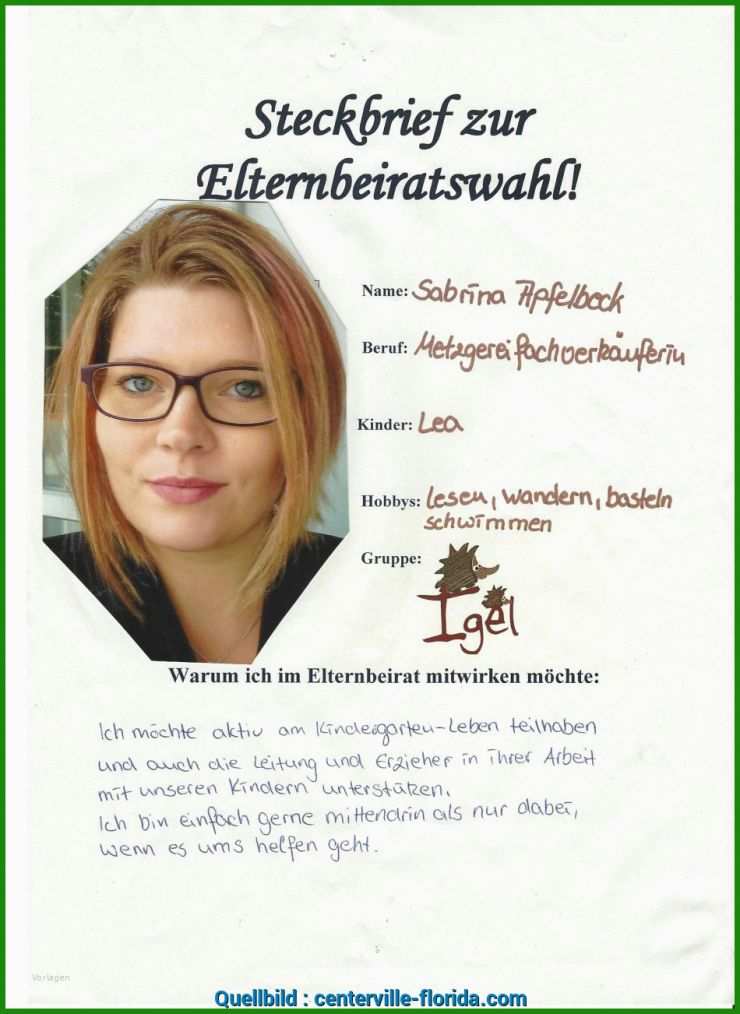 Steckbrief zur
Elternbeiratswahl!
Name: Sabrina Apfelbeck
Beruf: Metzgereifachverkäuferin
Kinder: Lea
Hobbys: lesen, wandern, basteln
schwimmen
Gruppe:
Igel
Warum ich im Elternbeirat mitwirken möchte:
Ich möchte aktiv am Kindergarten-Leben teilhaben
und auch die Leitung und Erzieher in ihrer Arbeit
mit unseren Kindern unterstützen.
Ich bin einfach gerne mittendrin als nur dabei,
wenn es ums helfen geht.
Vorlagen
Quellbild : centerville-florida.com